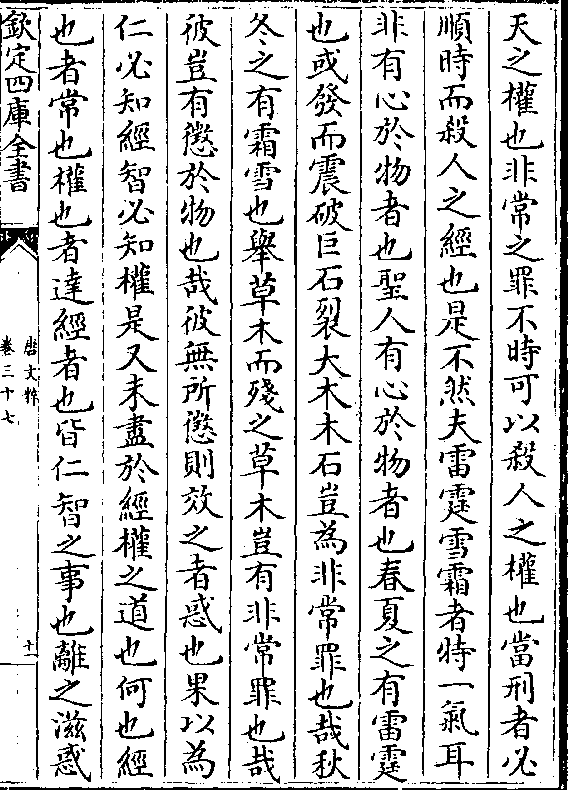 天之權也非常之罪不時可以殺人之權也當刑者必
順時而殺人之經也是不然夫雷霆雪霜者特一氣耳
非有心於物者也聖人有心於物者也春夏之有雷霆
也或發而震破巨石裂大木木石豈為非常罪也哉秋
冬之有霜雪也舉草木而殘之草木豈有非常罪也哉
彼豈有懲於物也哉彼無所懲則效之者惑也果以為
仁必知經智必知權是又未盡於經權之道也何也經
也者常也權也者達經者也皆仁智之事也離之滋惑
欽定四庫全書
唐文粹
卷三十七
十一